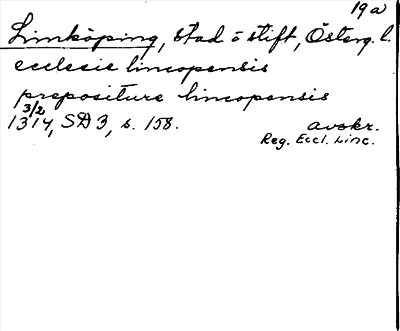 19a
Linköping, stad o stift, Österg. l.
ecclesie lincopensis
prepositure lincopensis
3/2
1314, SD 3, s. 158.
avskr.
Reg. Eccl. Linc.